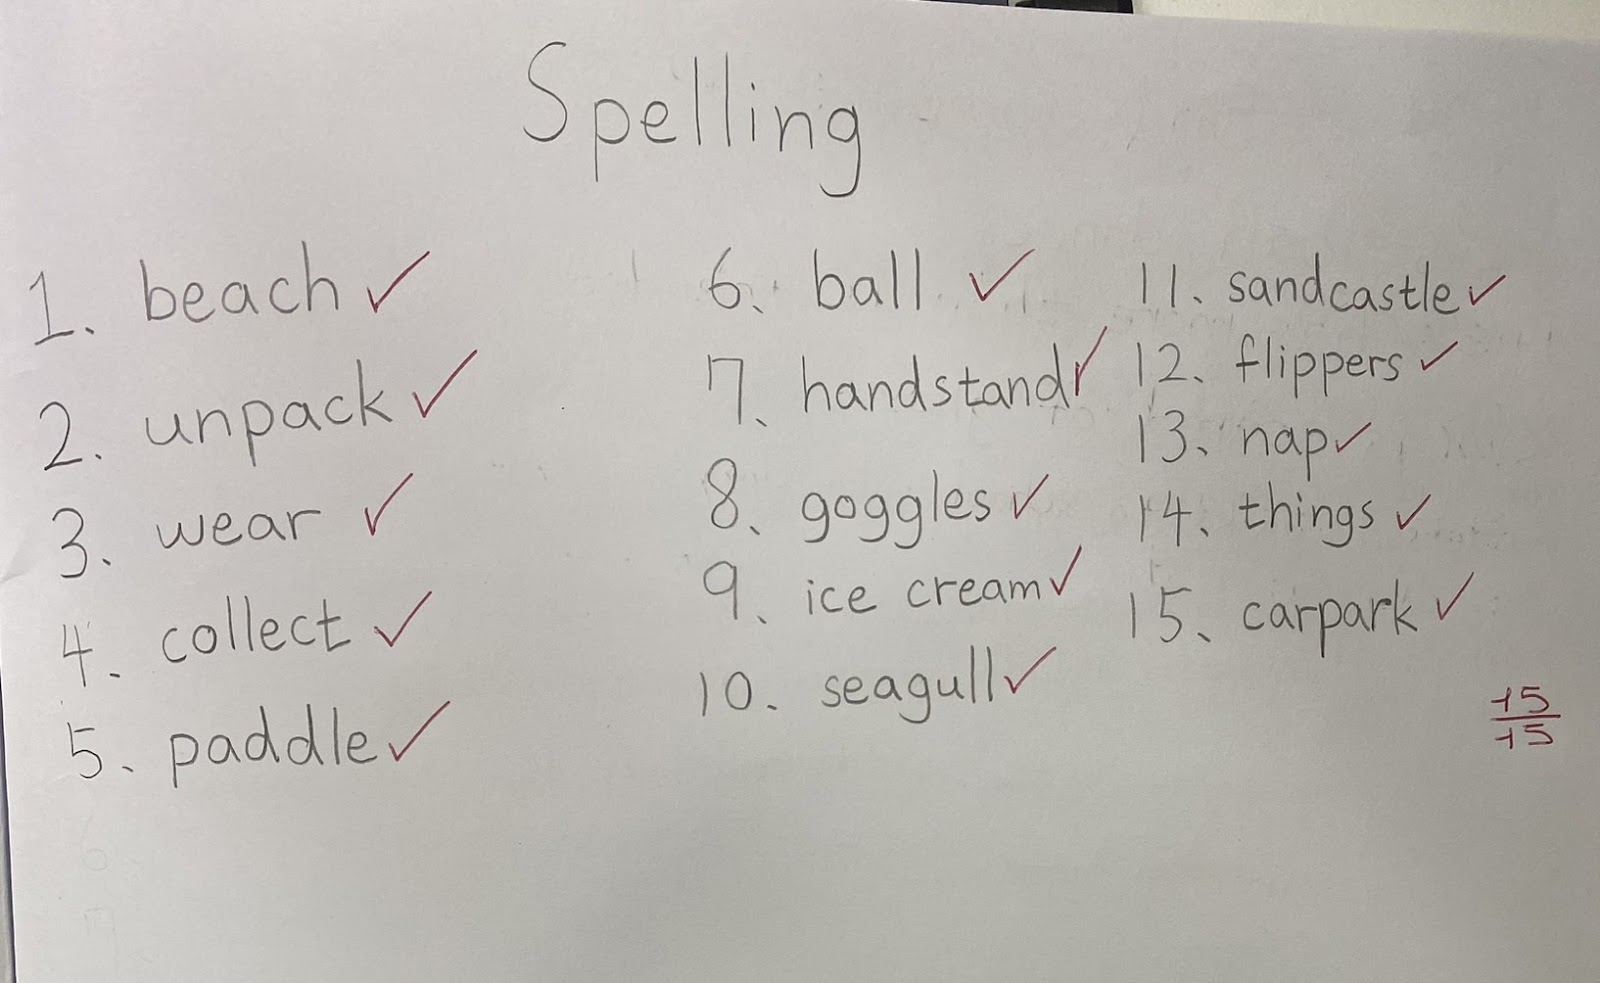 Spelling
1. beach ✓
2. unpack ✓
3. wear ✓
4. collect ✓
5. paddle ✓
6. ball ✓
7. handstand ✓
8. goggles ✓
9. ice cream ✓
10. seagull ✓
11. sandcastle ✓
12. flippers ✓
13. nap ✓
14. things ✓
15. carpark ✓
15
15